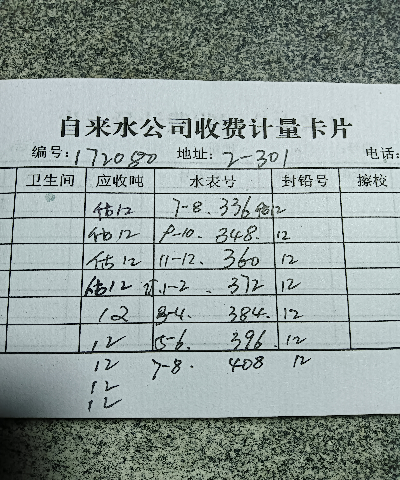 自来水公司收费计量卡片
编号:172080 地址:2-301 电话:
卫生间 应收吨 水表号 封铅号 擦校
估12 7-8. 336 估12
估12 9-10. 348. 12
估12 11-12. 360 12
估12 1-2. 372 12
12 3-4. 384. 12
12 5-6. 396. 12
12 7-8. 408 12
12
12